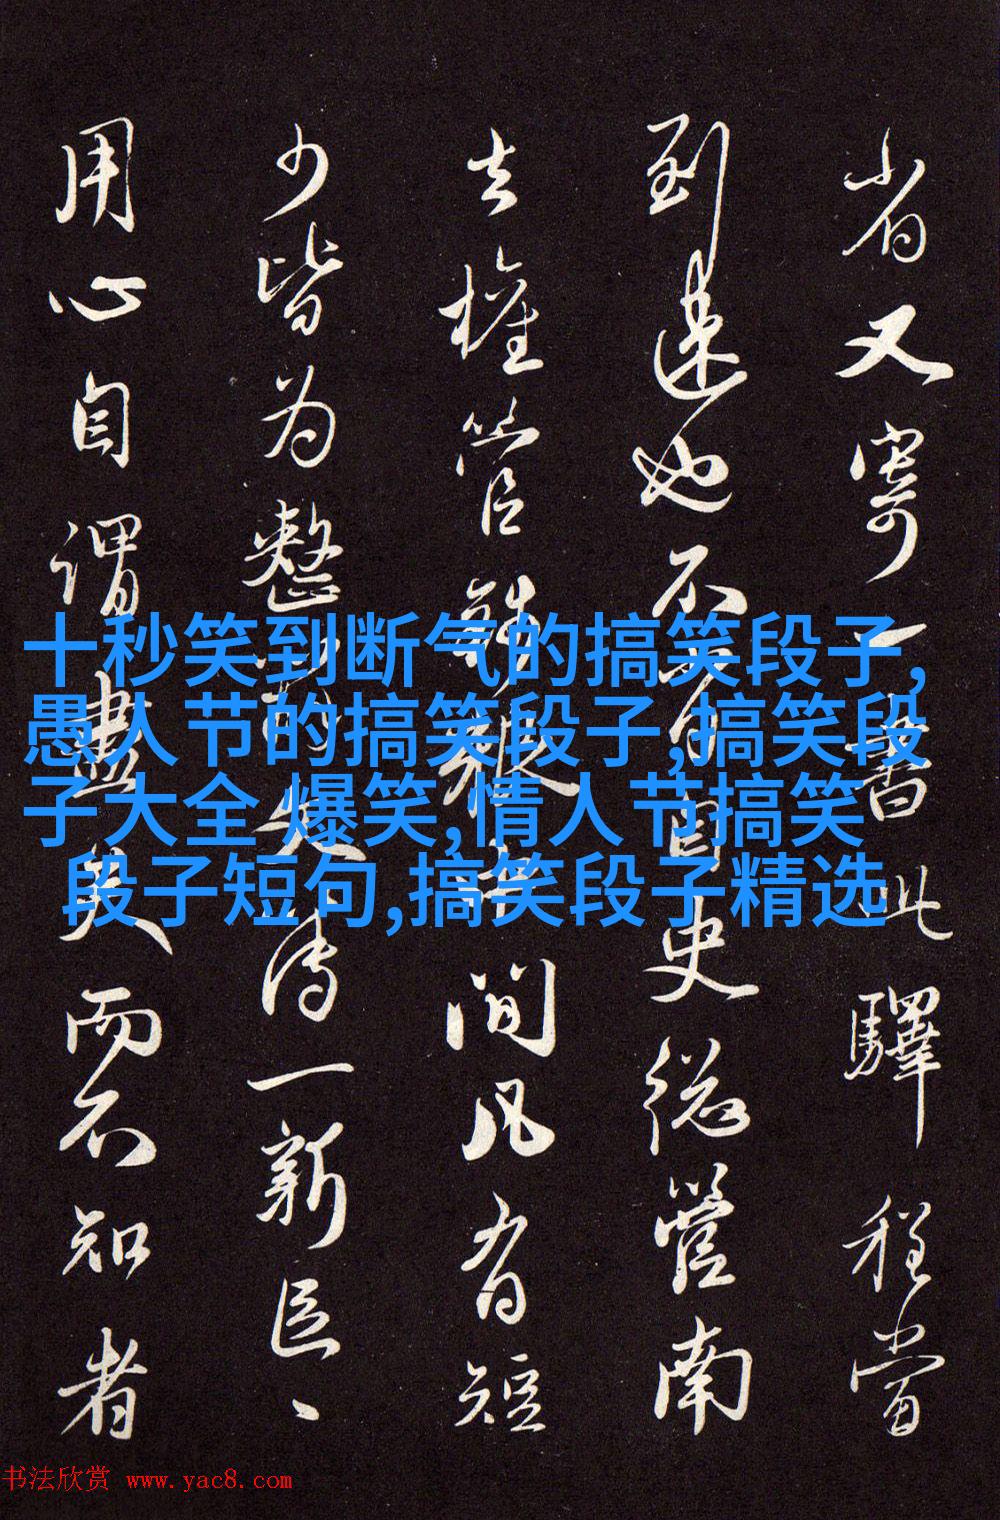 省又寄一書此驛程當
到遠也不可自史總管南
去權管雜報中間凡有短
少皆为整的失得一新臣、
用心自謂盡美而不知者
十秒笑到断气的搞笑段子,
愚人节的搞笑段子,搞笑段
子大全 爆笑,情人节搞笑
段子短句,搞笑段子精选
书法欣赏 www.yac8.com